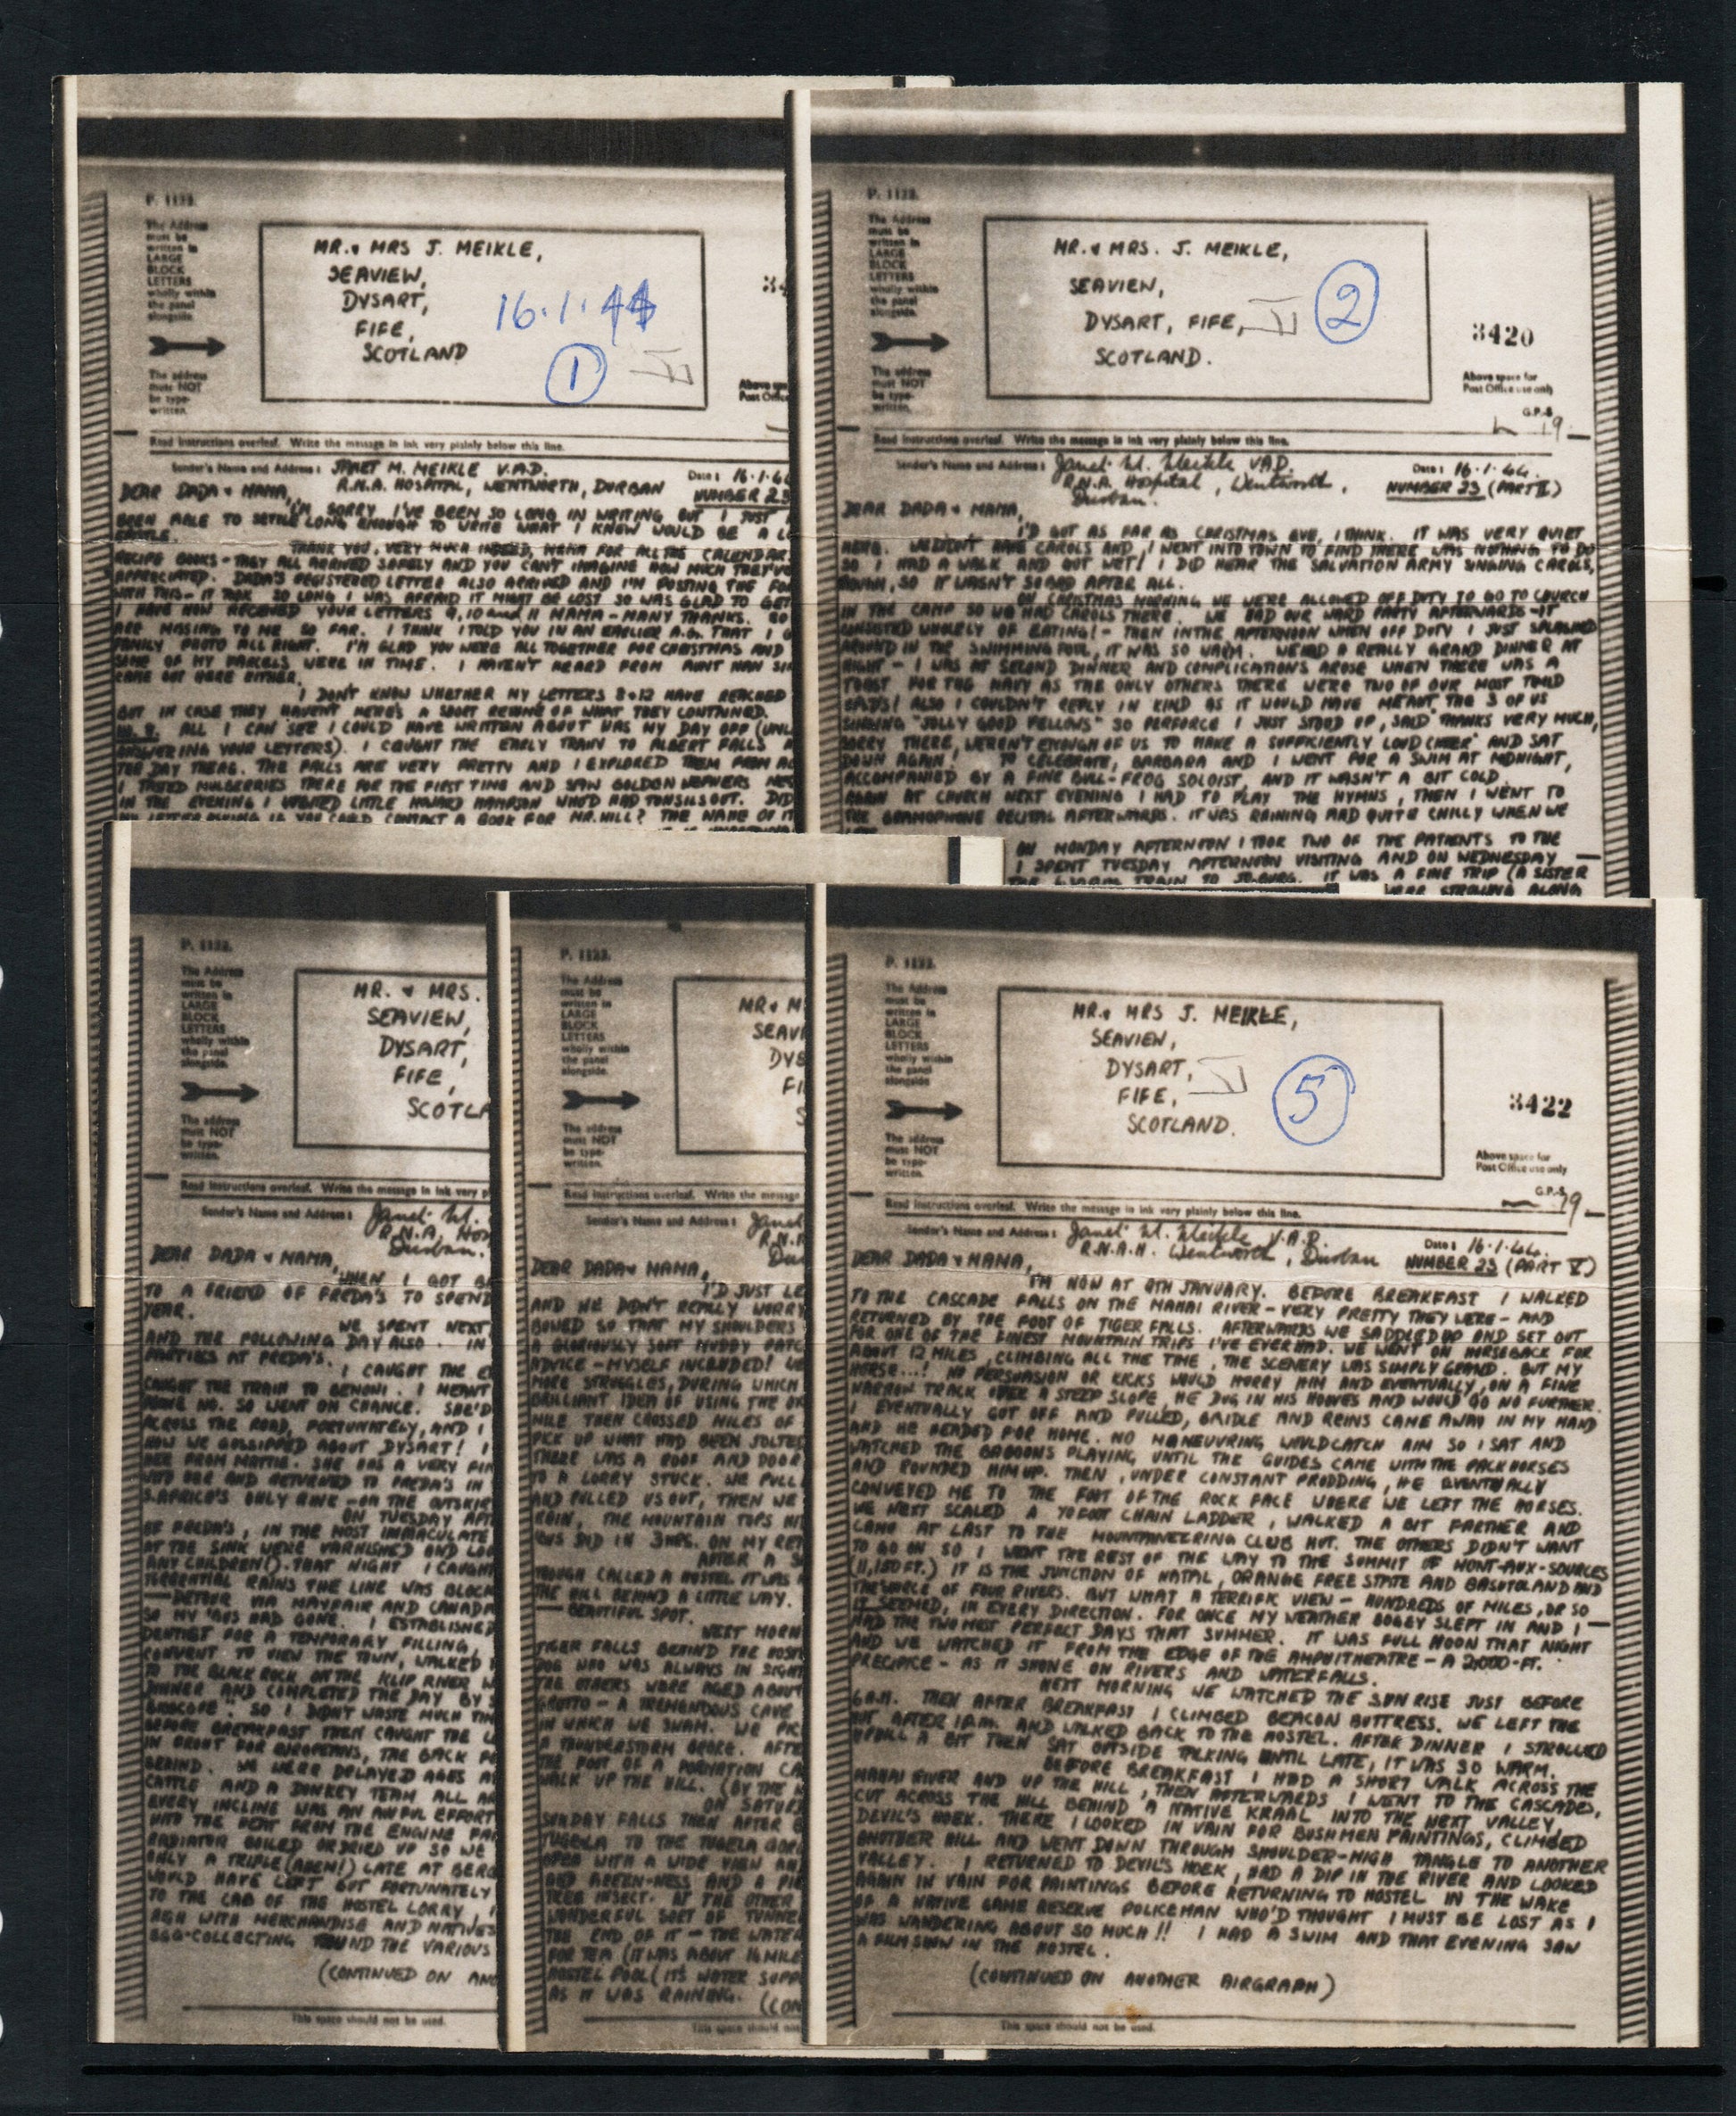 P. 1122.
The Address
must be
written in
LARGE
BLOCK
LETTERS
wholly within
the panel
alongside.
The address
must NOT
be type-
written.
MR. & MRS J. MEIKLE,
SEAVIEW,
DYSART,
FIFE,
SCOTLAND
16.1.44
1
34
Above spa
Post Office
Read instructions overleaf. Write the message in ink very plainly below this line.
Sender's Name and Address: JANET M. MEIKLE V.A.D.
R.N.A. HOSPITAL, WENTWORTH, DURBAN
Date: 16.1.44
NUMBER 23
DEAR DADA & MAMA,
I'M SORRY I'VE BEEN SO LONG IN WRITING BUT I JUST
BEEN ABLE TO SETTLE LONG ENOUGH TO WRITE WHAT I KNEW WOULD BE A LO
THANK YOU, VERY MUCH INDEED, MAMA FOR ALL THE CALENDAR
RECIPE BOOKS - THEY ALL ARRIVED SAFELY AND YOU CAN'T IMAGINE HOW MUCH THEY'VE
APPRECIATED. DADA'S REGISTERED LETTER ALSO ARRIVED AND I'M POSTING THE FO
WITH THIS - IT TOOK SO LONG I WAS AFRAID IT MIGHT BE LOST SO WAS GLAD TO GET
I HAVE NOW RECEIVED YOUR LETTERS 9, 10 and 11 MAMA - MANY THANKS.
ARE MISSING TO ME SO FAR. I THINK I TOLD YOU IN AN EARLIER A.G. THAT I G
FAMILY PHOTO ALL RIGHT. I'M GLAD YOU WERE ALL TOGETHER FOR CHRISTMAS AND
SOME OF MY PARCELS WERE IN TIME. I HAVEN'T HEARD FROM AUNT NAN SIN
CAME OUT HERE EITHER.
I DON'T KNOW WHETHER MY LETTERS 8 & 12 HAVE REACHED
BUT IN CASE THEY HAVEN'T HERE'S A SHORT RESUME OF WHAT THEY CONTAINED.
ALL I CAN SEE I COULD HAVE WRITTEN ABOUT WAS MY DAY OFF (UNL
ANSWERING YOUR LETTERS). I CAUGHT THE EARLY TRAIN TO ALBERT FALLS A
THE DAY THERE. THE FALLS ARE VERY PRETTY AND I EXPLORED THEM FROM
I TASTED MULBERRIES THERE FOR THE FIRST TIME AND SAW GOLDEN WEAVERS NES
IN THE EVENING I VISITED LITTLE HOWARD HAMPSON WHO'D HAD TONSILS OUT. DID
MY LETTER ASKING IF YOU COULD CONTACT A BOOK FOR MR. HILL? THE NAME OF IT
P. 1122.
The Address
must be
written in
LARGE
BLOCK
LETTERS
wholly within
the panel
alongside.
The address
must NOT
be type-
written.
MR. & MRS. J. MEIKLE,
SEAVIEW,
DYSART, FIFE,
SCOTLAND.
2
3420
Above space for
Post Office use only
G.P.S
19
Read instructions overleaf. Write the message in ink very plainly below this line.
Sender's Name and Address: Janet M. Meikle V.A.D.
R.N.A. Hospital, Wentworth,
Durban.
Date: 16.1.44.
NUMBER 23 (PART II)
DEAR DADA & MAMA,
I'D GOT AS FAR AS CHRISTMAS EVE, I THINK. IT WAS VERY QUIET
HERE. WE DIDN'T HAVE CAROLS AND I WENT INTO TOWN TO FIND THERE WAS NOTHING TO DO
SO I HAD A WALK AND GOT WET! I DID HEAR THE SALVATION ARMY SINGING CAROLS,
THOUGH, SO IT WASN'T SO BAD AFTER ALL.
ON CHRISTMAS MORNING WE WERE ALLOWED OFF DUTY TO GO TO CHURCH
IN THE CAMP SO WE HAD CAROLS THERE. WE HAD OUR WARD PARTY AFTERWARDS - IT
CONSISTED WHOLELY OF EATING! - THEN IN THE AFTERNOON WHEN OFF DUTY I JUST SPLASHED
AROUND IN THE SWIMMING POOL, IT WAS SO WARM. WE HAD A REALLY GRAND DINNER AT
NIGHT - I WAS AT SECOND DINNER AND COMPLICATIONS AROSE WHEN THERE WAS A
TOAST FOR THE NAVY AS THE ONLY OTHERS THERE WERE TWO OF OUR MOST TIMID
V.A.D'S! ALSO I COULDN'T REPLY IN KIND AS IT WOULD HAVE MEANT THE 3 OF US
SINGING "JOLLY GOOD FELLOWS" SO PERFORCE I JUST STOOD UP, SAID "THANKS VERY MUCH,
SORRY THERE WEREN'T ENOUGH OF US TO MAKE A SUFFICIENTLY LOUD CHEER" AND SAT
DOWN AGAIN! TO CELEBRATE, BARBARA AND I WENT FOR A SWIM AT MIDNIGHT,
ACCOMPANIED BY A FINE BULL-FROG SOLOIST, AND IT WASN'T A BIT COLD.
AGAIN AT CHURCH NEXT EVENING I HAD TO PLAY THE HYMNS, THEN I WENT TO
THE GRAMOPHONE RECITAL AFTERWARDS. IT WAS RAINING AND QUITE CHILLY WHEN WE
ON MONDAY AFTERNOON I TOOK TWO OF THE PATIENTS TO THE
I SPENT TUESDAY AFTERNOON VISITING AND ON WEDNESDAY
TRAIN TO JO-BURG. IT WAS A FINE TRIP (A SISTER
WERE STROLLING ALONG
P. 1122.
The Address
must be
written in
LARGE
BLOCK
LETTERS
wholly within
the panel
alongside.
The address
must NOT
be type-
written.
MR. & MRS.
SEAVIEW,
DYSART,
FIFE,
SCOTLA
Read instructions overleaf. Write the message in ink very p
Sender's Name and Address: Janet M.
R.N.A. Hos
Durban.
DEAR DADA & MAMA,
WHEN I GOT B
TO A FRIEND OF FREDA'S TO SPEND
YEAR.
WE SPENT NEXT
AND THE FOLLOWING DAY ALSO. IN
PARTIES AT FREDA'S.
I CAUGHT THE E
CAUGHT THE TRAIN TO BENONI. I MEANT
PHONE NO. SO WENT ON CHANCE. SHE'D
ACROSS THE ROAD, FORTUNATELY, AND I
HOW WE GOSSIPPED ABOUT DYSART! I
HER FROM MATTIE. SHE HAS A VERY FIN
WITH HER AND RETURNED TO FREDA'S IN
S. AFRICA'S ONLY RINK - ON THE OUTSKIR
ON TUESDAY AFT
OF FREDA'S, IN THE MOST IMMACULATE
AT THE SINK WERE VARNISHED AND LOO
ANY CHILDREN!). THAT NIGHT I CAUGHT
TORRENTIAL RAINS THE LINE WAS BLOCK
DETOUR VIA MAYFAIR AND CANADA
SO MY 'BUS HAD GONE. I ESTABLISHED
DENTIST FOR A TEMPORARY FILLING,
CONVENT TO VIEW THE TOWN, WALKED
TO THE BLACK ROCK ON THE KLIP RIVER W
DINNER AND COMPLETED THE DAY BY S
BIOSCOPE". SO I DIDN'T WASTE MUCH TIM
BEFORE BREAKFAST THEN CAUGHT THE
IN FRONT FOR EUROPEANS, THE BACK P
BEHIND. WE WERE DELAYED AGES A
CATTLE AND A DONKEY TEAM ALL A
EVERY INCLINE WAS AN AWFUL EFFORT
WITH THE HEAT FROM THE ENGINE
RADIATOR BOILED OR DRIED UP SO WE
ONLY A TRIFLE (AHEM!) LATE AT BERG
WOULD HAVE LEFT BUT FORTUNATELY
TO THE CAB OF THE HOSTEL LORRY,
HIGH WITH MERCHANDISE AND NATIVES
EGG-COLLECTING ROUND THE VARIOUS
(CONTINUED ON ANO
This space should not be used.
P. 1122.
The Address
must be
written in
LARGE
BLOCK
LETTERS
wholly within
the panel
alongside.
The address
must NOT
be type-
written.
MR & M
SEAVI
DYS
FI
S
Read instructions overleaf. Write the message
Sender's Name and Address: Janet
R.N.A
Du
DEAR DADA & MAMA,
I'D JUST LE
AND HE DIDN'T REALLY WORRY
BOWED SO THAT MY SHOULDERS
A GLORIOUSLY SOFT MUDDY PATC
ADVICE - MYSELF INCLUDED! WE
MORE STRUGGLES, DURING WHICH
BRILLIANT IDEA OF USING THE
MILE THEN CROSSED MILES OF
PICK UP WHAT HAD BEEN JOLTED
THERE WAS A ROOF AND DOOR
TO A LORRY STUCK. WE PULL
AND PULLED US OUT, THEN WE
RAIN, THE MOUNTAIN TOPS HI
BUS DID IN 3 HRS. ON MY RET
AFTER A S
THOUGH CALLED A HOSTEL IT WAS
THE HILL BEHIND A LITTLE WAY.
- BEAUTIFUL SPOT.
NEXT MORN
TIGER FALLS BEHIND THE HOST
DOG WHO WAS ALWAYS IN SIGHT
THE OTHERS WERE AGED ABOUT
GROTTO - A TREMENDOUS CAVE
IN WHICH WE SWAM. WE PIC
A THUNDERSTORM BROKE. AFTE
THE FOOT OF A FORMATION CA
WALK UP THE HILL. (BY THE
ON SATUR
SUNDAY FALLS THEN AFTER B
TUGELA TO THE TUGELA GOR
OPEN WITH A WIDE VIEW AN
AND GREEN-NESS AND A PI
TREE INSECT. AT THE OTHER
WONDERFUL SORT OF TUNNEL
THE END OF IT - THE WATER
FOR TEA (IT WAS ABOUT 16 MILE
HOSTEL POOL (IT'S WATER SUPP
AS IT WAS RAINING.
(CON
This space should not
P. 1122.
The Address
must be
written in
LARGE
BLOCK
LETTERS
wholly within
the panel
alongside
The address
must NOT
be type-
written.
MR. & MRS J. MEIKLE,
SEAVIEW,
DYSART,
FIFE,
SCOTLAND.
5
3422
Above space for
Post Office use only
G.P.S
19
Read instructions overleaf. Write the message in ink very plainly below this line.
Sender's Name and Address: Janet M. Meikle V.A.D.
R.N.A.H. Wentworth, Durban
Date: 16.1.44.
NUMBER 23 (PART V)
DEAR DADA & MAMA,
I'M NOW AT 9TH JANUARY. BEFORE BREAKFAST I WALKED
TO THE CASCADE FALLS ON THE MAHAI RIVER - VERY PRETTY THEY WERE - AND
RETURNED BY THE FOOT OF TIGER FALLS. AFTERWARDS WE SADDLED UP AND SET OUT
FOR ONE OF THE FINEST MOUNTAIN TRIPS I'VE EVER HAD. WE WENT ON HORSEBACK FOR
ABOUT 12 MILES, CLIMBING ALL THE TIME, THE SCENERY WAS SIMPLY GRAND. BUT MY
HORSE...! NO PERSUASION OR KICKS WOULD HURRY HIM AND EVENTUALLY, ON A FINE
NARROW TRACK OVER A STEEP SLOPE, HE DUG IN HIS HOOVES AND WOULD GO NO FURTHER.
I EVENTUALLY GOT OFF AND PULLED, BRIDLE AND REINS CAME AWAY IN MY HAND
AND HE HEADED FOR HOME. NO MANEUVRING WOULD CATCH HIM SO I SAT AND
WATCHED THE BABOONS PLAYING UNTIL THE GUIDES CAME WITH THE PACKHORSES
AND ROUNDED HIM UP. THEN, UNDER CONSTANT PRODDING, HE EVENTUALLY
CONVEYED ME TO THE FOOT OF THE ROCK FACE WHERE WE LEFT THE HORSES.
WE NEXT SCALED A 70 FOOT CHAIN LADDER, WALKED A BIT FARTHER AND
CAME AT LAST TO THE MOUNTAINEERING CLUB HUT. THE OTHERS DIDN'T WANT
TO GO ON SO I WENT THE REST OF THE WAY TO THE SUMMIT OF MONT-AUX-SOURCES
(11,150 FT.) IT IS THE JUNCTION OF NATAL, ORANGE FREE STATE AND BASUTOLAND AND
THE SOURCE OF FOUR RIVERS. BUT WHAT A TERRIFIC VIEW - HUNDREDS OF MILES, OR SO
IT SEEMED, IN EVERY DIRECTION. FOR ONCE MY WEATHER BOGEY SLEPT IN AND I
HAD THE TWO MOST PERFECT DAYS THAT SUMMER. IT WAS FULL MOON THAT NIGHT
AND WE WATCHED IT FROM THE EDGE OF THE AMPHITHEATRE - A 2,000-FT.
PRECIPICE - AS IT SHONE ON RIVERS AND WATERFALLS.
NEXT MORNING WE WATCHED THE SUN RISE JUST BEFORE
6 A.M. THEN AFTER BREAKFAST I CLIMBED BEACON BUTTRESS. WE LEFT THE
HUT AFTER 1 P.M. AND WALKED BACK TO THE HOSTEL. AFTER DINNER I STROLLED
UPHILL A BIT THEN SAT OUTSIDE TALKING UNTIL LATE, IT WAS SO WARM.
BEFORE BREAKFAST I HAD A SHORT WALK ACROSS THE
MAHAI RIVER AND UP THE HILL, THEN AFTERWARDS I WENT TO THE CASCADES,
CUT ACROSS THE HILL BEHIND A NATIVE KRAAL INTO THE NEXT VALLEY,
DEVIL'S HOEK. THERE I LOOKED IN VAIN FOR BUSHMEN PAINTINGS, CLIMBED
ANOTHER HILL AND WENT DOWN THROUGH SHOULDER-HIGH TANGLE TO ANOTHER
VALLEY. I RETURNED TO DEVIL'S HOEK, HAD A DIP IN THE RIVER AND LOOKED
AGAIN IN VAIN FOR PAINTINGS BEFORE RETURNING TO HOSTEL IN THE WAKE
OF A NATIVE GAME RESERVE POLICEMAN WHO'D THOUGHT I MUST BE LOST AS I
WAS WANDERING ABOUT SO MUCH!! I HAD A SWIM AND THAT EVENING SAW
A FILM SHOW IN THE HOSTEL.
(CONTINUED ON ANOTHER AIRGRAPH)
This space should not be used.